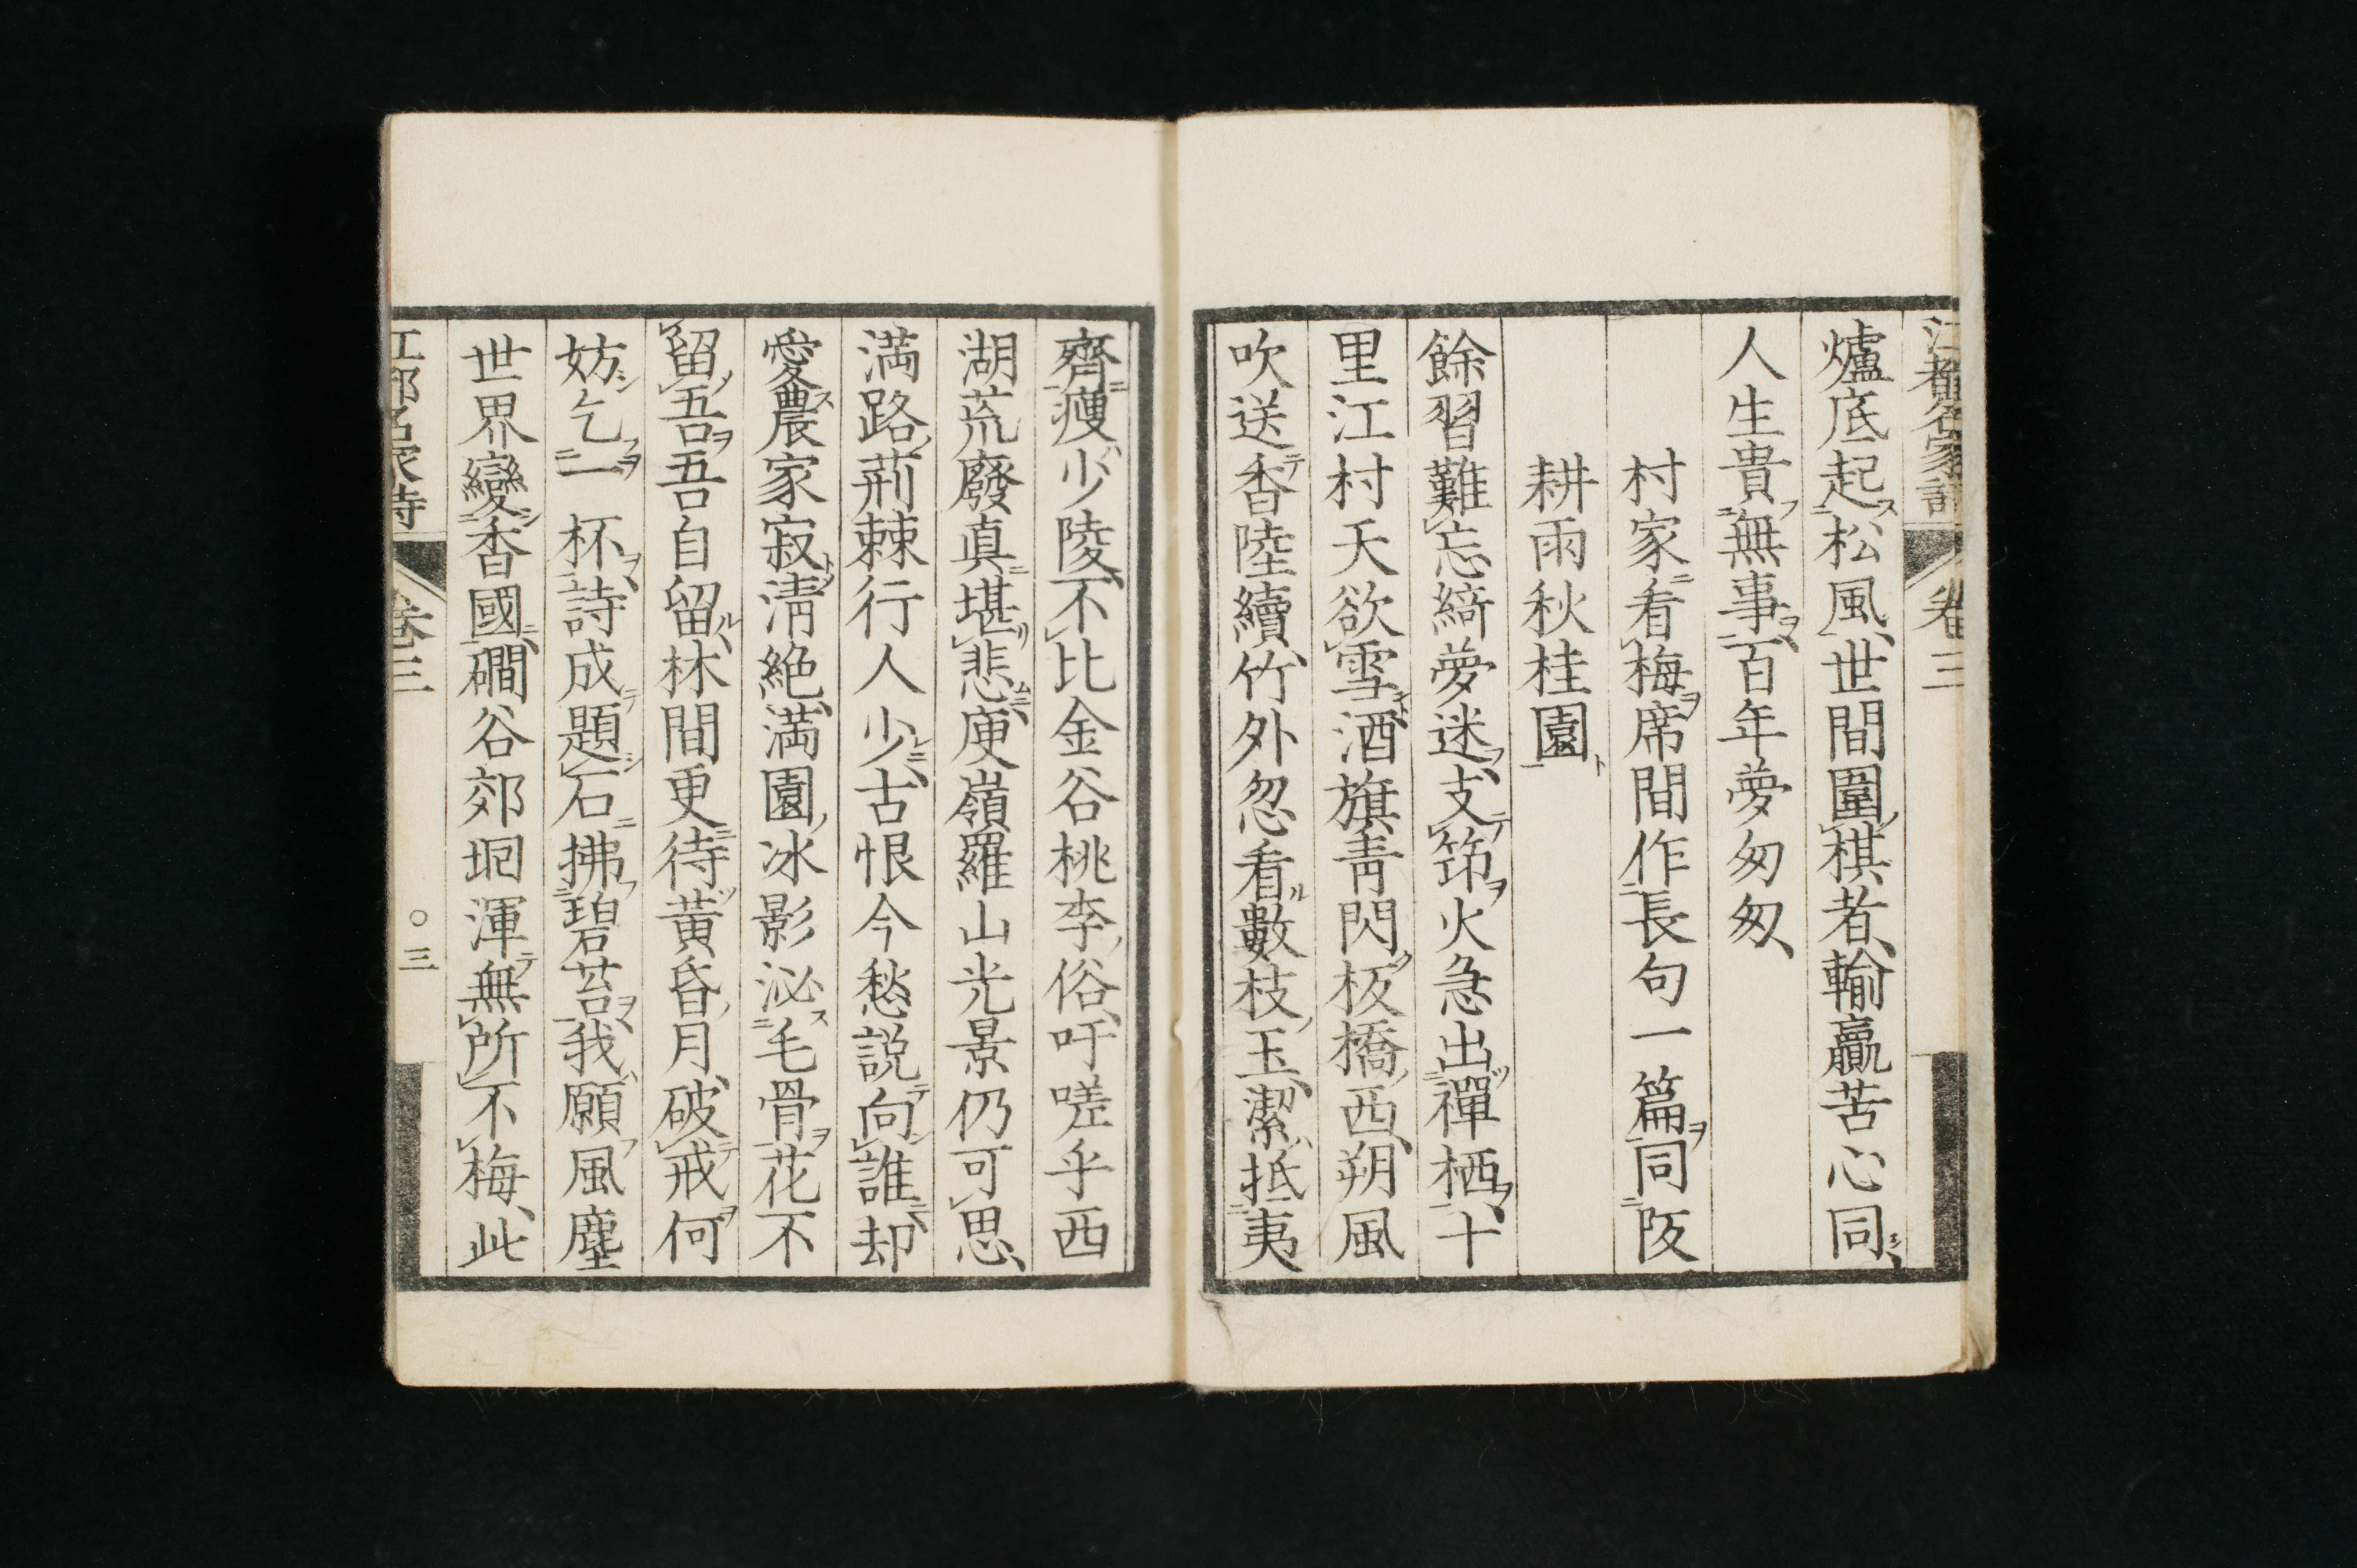 江都名家詩 卷三
爐底起松風、世間圍棋者、輸贏苦心同、
人生貴無事、百年夢匆匆、
村家看梅席間作長句一篇同阪
耕雨秋桂園
餘習難忘綺夢迷、支筇火急出禪栖、十
里江村天欲雪、酒旗青閃板橋西、朔風
吹送香陸續、竹外忽看數枝玉、潔抵夷
齊瘦少陵、不比金谷桃李俗、吁嗟乎西
湖荒廢真堪悲、庾嶺羅山光景仍可思、
満路荊棘行人少、古恨今愁説向誰、却
愛農家寂清絶、満園冰影泌毛骨、花不
留吾吾自留、林間更待黃昏月、破戒何
妨乞一杯、詩成題石拂碧苔、我願風塵
世界變香國、磵谷郊坰渾無所不梅、此
江都名家詩 卷三 〇三